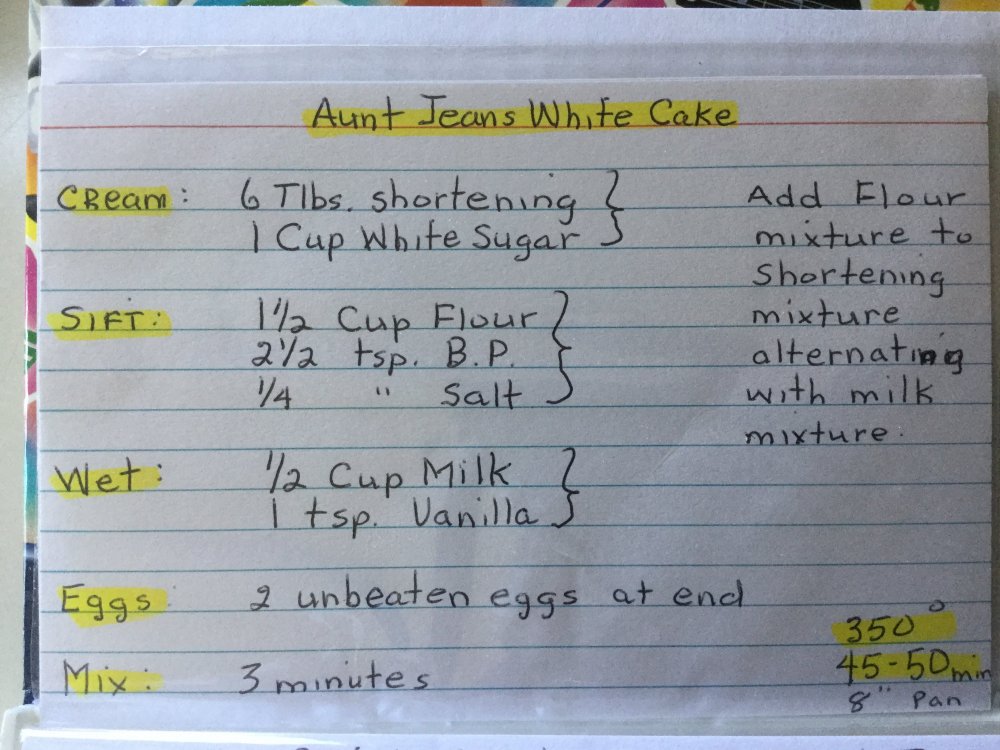 Aunt Jeans White Cake
CReam: 6 Tlbs. shortening
1 Cup White Sugar
SIFT: 1 1/2 Cup Flour
2 1/2 tsp. B.P.
1/4 " Salt
Wet: 1/2 Cup Milk
1 tsp. Vanilla
Eggs 2 unbeaten eggs at end
Mix: 3 minutes
Add Flour
mixture to
Shortening
mixture
alternating
with milk
mixture.
350°
45-50 min
8" Pan